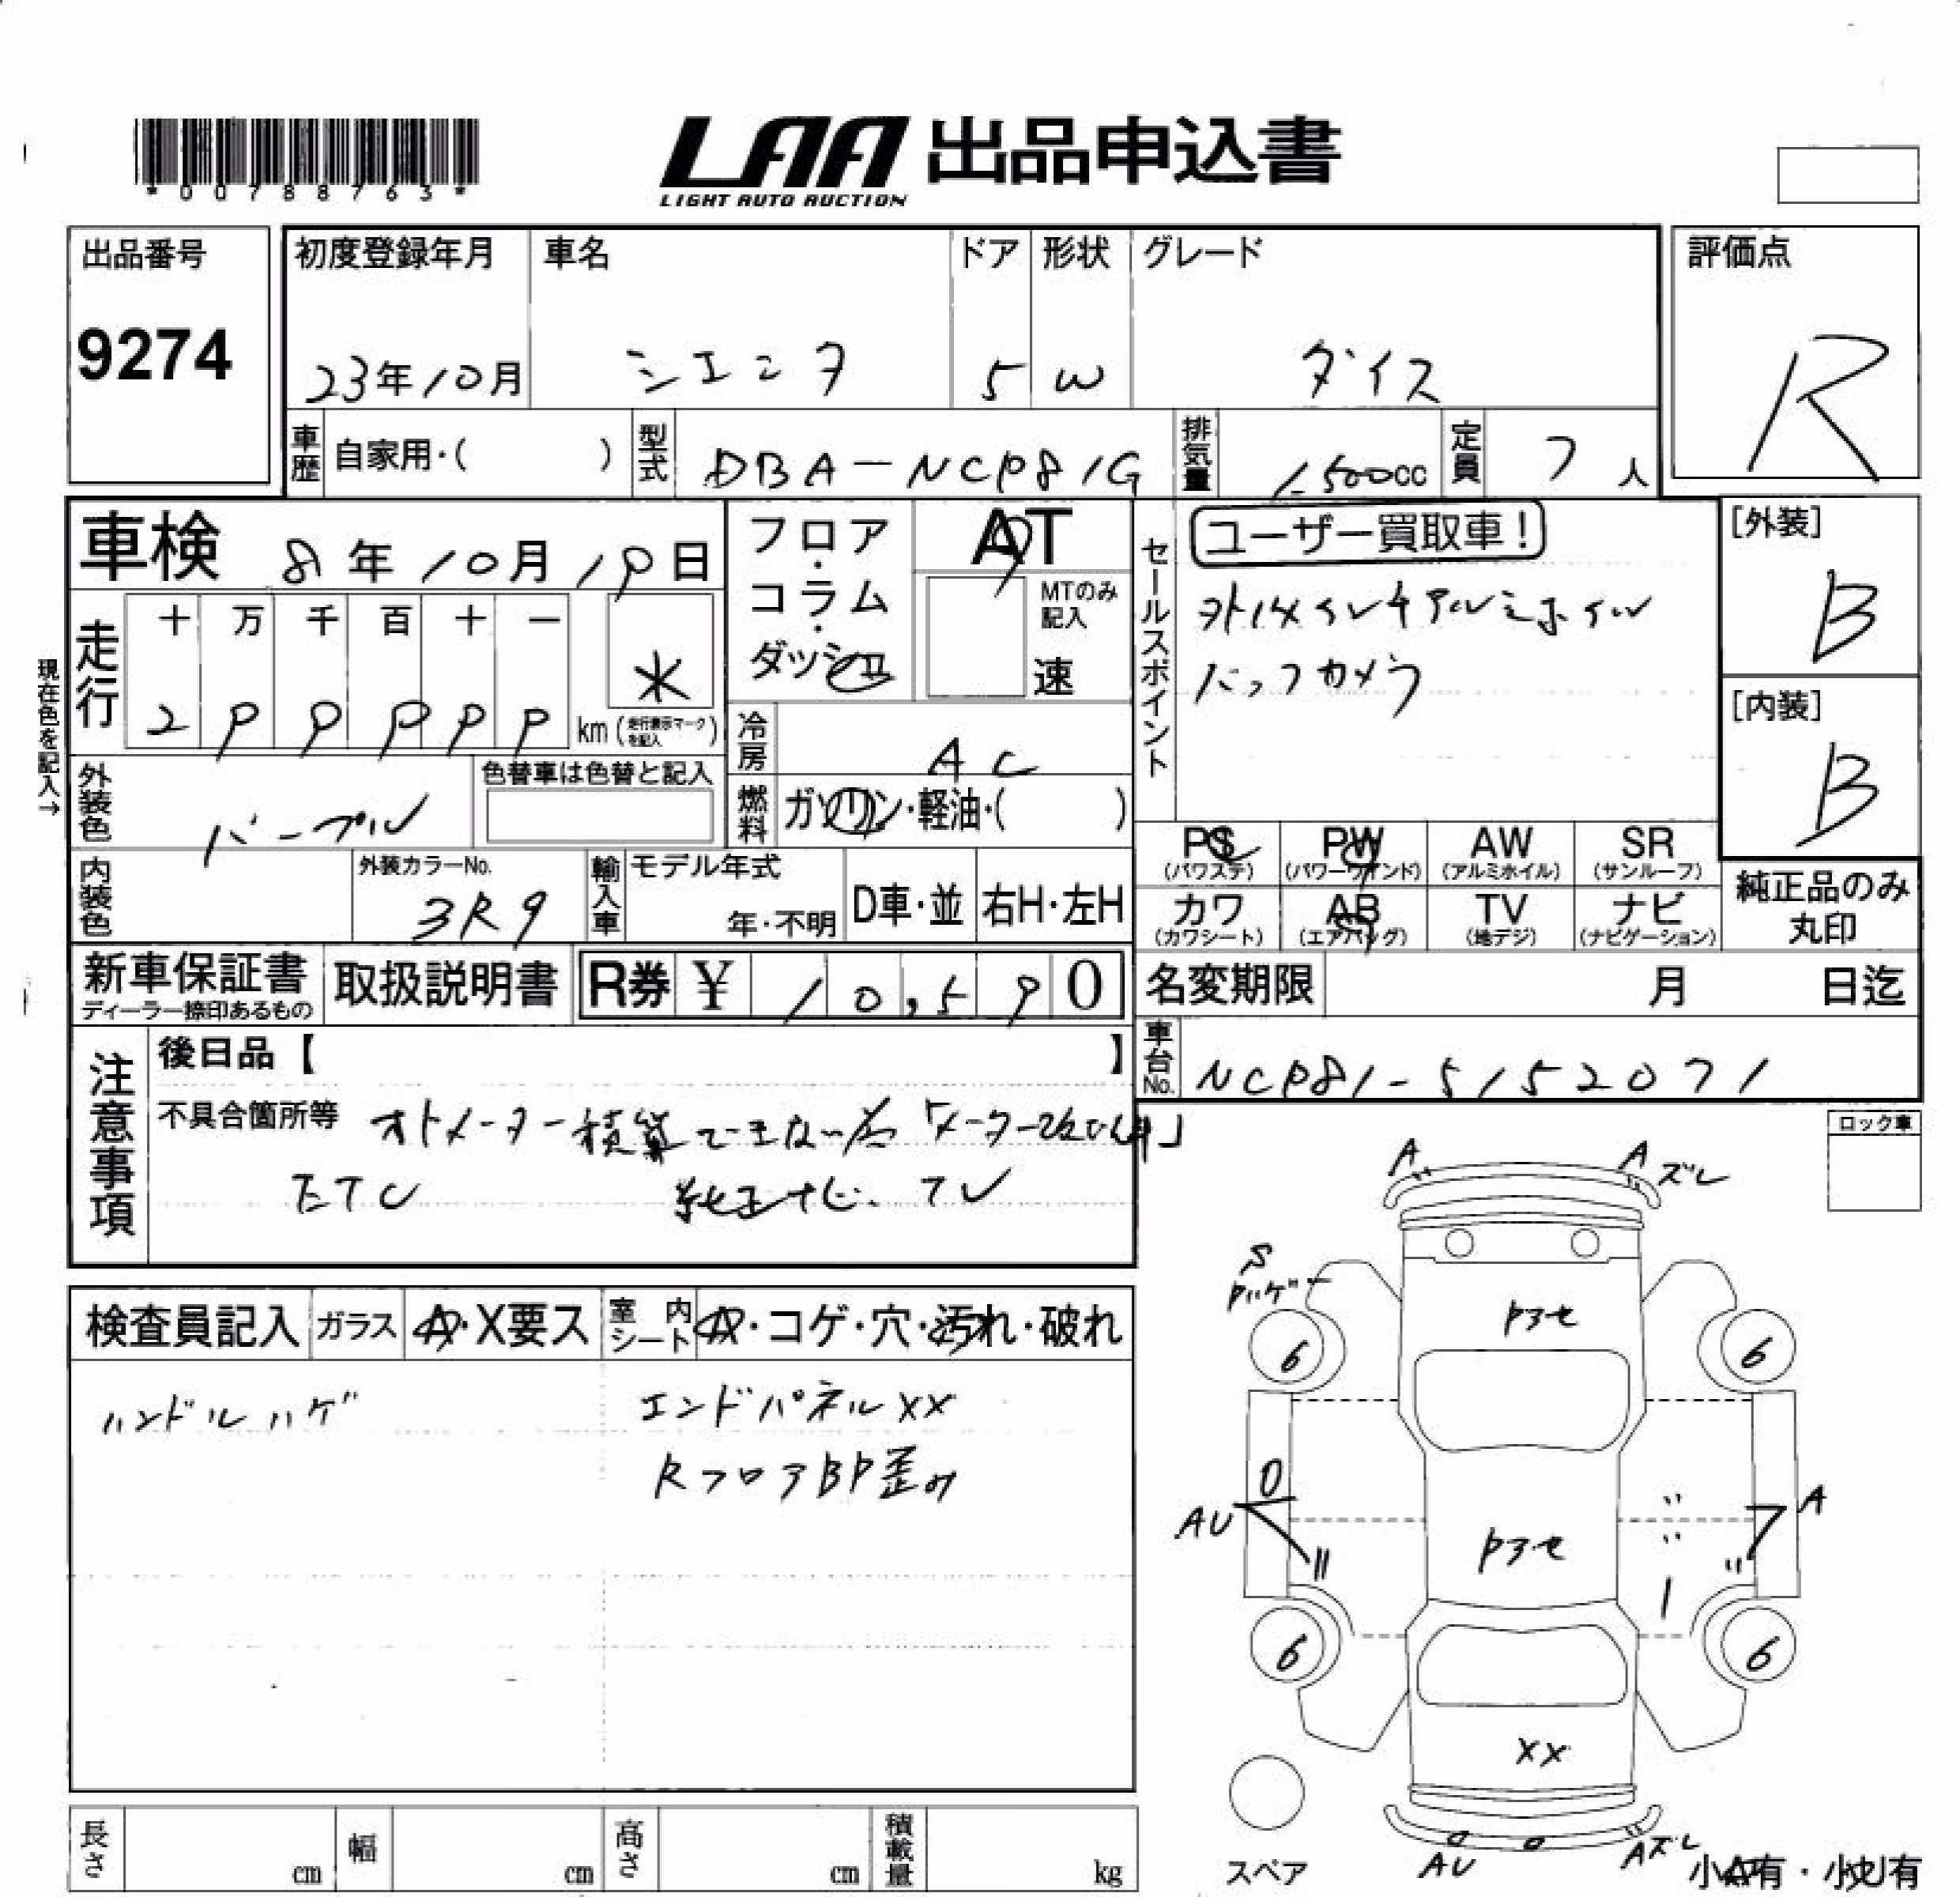 *00788763*
LAA 出品申込書
LIGHT AUTO AUCTION
出品番号
9274
初度登録年月
23年10月
車名
シエンタ
ドア
5
形状
W
グレード
ダイス
評価点
R
車歴 自家用・( )
型式 DBA-NCP81G
排気量 1500cc
定員 7人
車検 8年10月19日
フロア・コラム・ダッシュ
AT
MTのみ記入
速
走行 十 万 千 百 十 一
2 9 9 9 9 9 km (走行表示マークを記入) *
現在色を記入→
外装色 パープル
色替車は色替と記入
冷房 AC
燃料 ガソリン・軽油・( )
内装色
外装カラーNo. 3R9
輸入車 モデル年式 年・不明 D車・並 右H・左H
新車保証書 ディーラー捺印あるもの
取扱説明書
R券 ¥ 10,590
セールスポイント
ユーザー買取車!
アルミホイル
バックカメラ
[外装]
B
[内装]
B
PS (パワステ) PW (パワーウインド) AW (アルミホイル) SR (サンルーフ)
カワ (カワシート) AB (エアバッグ) TV (地デジ) ナビ (ナビゲーション)
純正品のみ丸印
名変期限 月 日迄
車台No. NCP81-5152071
注意事項
後日品【 】
不具合箇所等 オドメーター積算できない為「メーター改ざん車」
ETC 純正ナビ. TV
ロック車
検査員記入 ガラス A・X要ス 室内シート A・コゲ・穴・汚れ・破れ
ハンドルハゲ エンドパネルXX
RフロアBP歪み
A A ズレ
S
Pハゲ
Pアセ
6 6
AU A
Pアセ
6 6
XX
AU Aズレ
スペア
小A有・小U有
長さ cm 幅 cm 高さ cm 積載量 kg